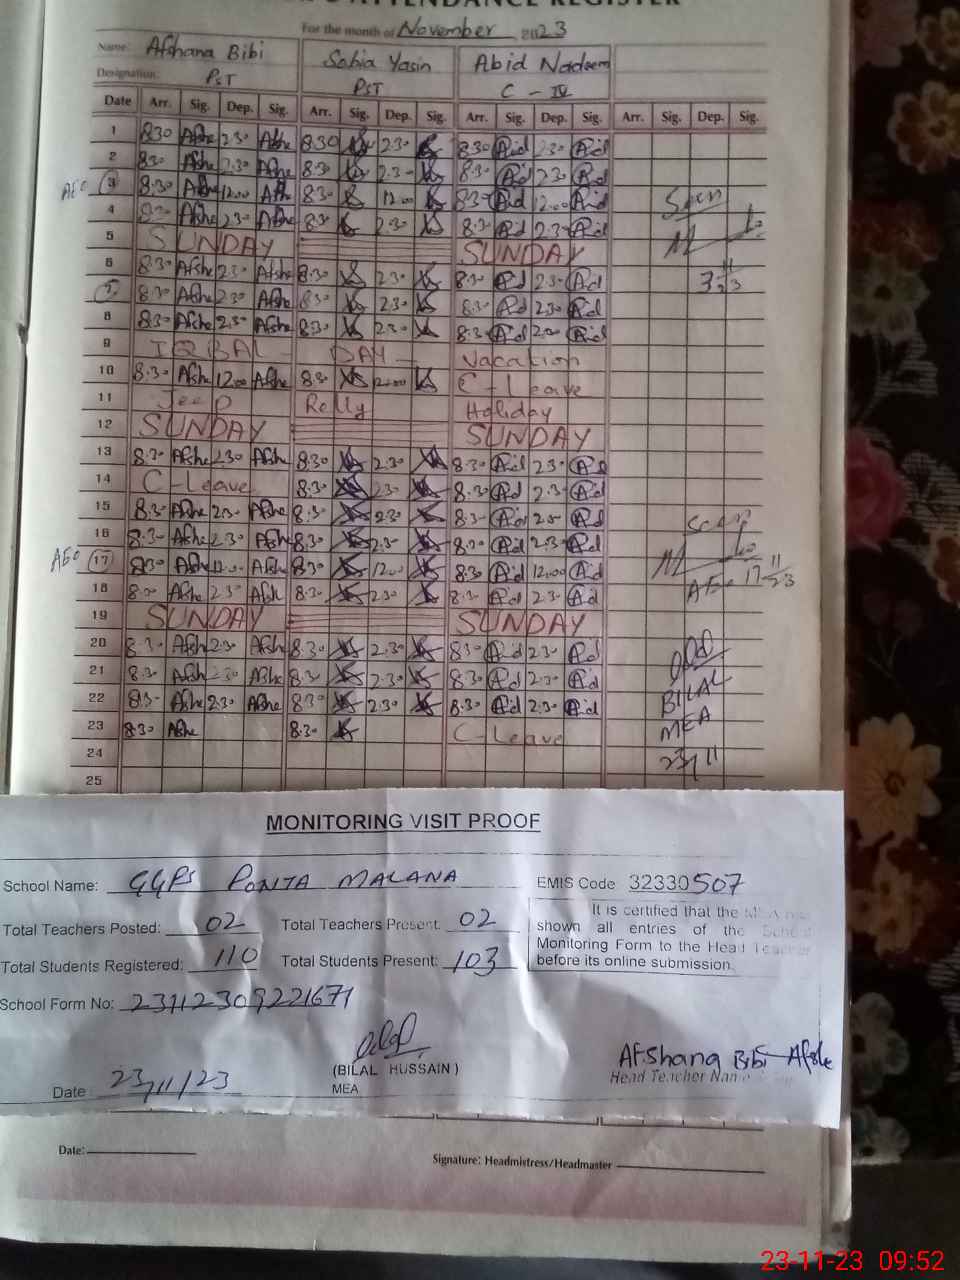 ATTENDANCE REGISTER
For the month of November 2023
Name: Afshana Bibi Sobia Yasin Abid Nadeem
Designation: PST PST C - IV
Date Arr. Sig. Dep. Sig. Arr. Sig. Dep. Sig. Arr. Sig. Dep. Sig. Arr. Sig. Dep. Sig.
1 8:30 Afshe 2:30 Afshe 8:30 2:30 8:30 Aid 2:30 Aid
2 8:30 Afshe 2:30 Afshe 8:30 2:30 8:30 Aid 2:30 Aid
AEO 3 8:30 Afshe 12:00 Afshe 8:30 12:00 8:30 Aid 12:00 Aid Seen
4 8:30 Afshe 2:30 Afshe 8:30 2:30 8:30 Aid 2:30 Aid
5 SUNDAY SUNDAY
6 8:30 Afshe 2:30 Afshe 8:30 2:30 8:30 Aid 2:30 Aid 3/11/23
7 8:30 Afshe 2:30 Afshe 8:30 2:30 8:30 Aid 2:30 Aid
8 8:30 Afshe 2:30 Afshe 8:30 2:30 8:30 Aid 2:30 Aid
9 IQBAL DAY Vacation
10 8:30 Afshe 12:00 Afshe 8:30 12:00 C-Leave
11 Jeep Relly Holiday
12 SUNDAY SUNDAY
13 8:30 Afshe 2:30 Afshe 8:30 2:30 8:30 Aid 2:30 Aid
14 C-Leave 8:30 2:30 8:30 Aid 2:30 Aid
15 8:30 Afshe 2:30 Afshe 8:30 2:30 8:30 Aid 2:30 Aid
16 8:30 Afshe 2:30 Afshe 8:30 2:30 8:30 Aid 2:30 Aid
AEO 17 8:30 Afshe 12:00 Afshe 8:30 12:00 8:30 Aid 12:00 Aid
18 8:30 Afshe 2:30 Afshe 8:30 2:30 8:30 Aid 2:30 Aid AEO 17/11/23
19 SUNDAY SUNDAY
20 8:30 Afshe 2:30 Afshe 8:30 2:30 8:30 Aid 2:30 Aid
21 8:30 Afshe 2:30 Afshe 8:30 2:30 8:30 Aid 2:30 Aid
22 8:30 Afshe 2:30 Afshe 8:30 2:30 8:30 Aid 2:30 Aid BILAL
23 8:30 Afshe 8:30 C-Leave MEA
24 23/11
25
MONITORING VISIT PROOF
School Name: GGPS PONTA MALANA EMIS Code 32330507
Total Teachers Posted: 02 Total Teachers Present: 02
Total Students Registered: 110 Total Students Present: 103
It is certified that the MEA has
shown all entries of the School
Monitoring Form to the Head Teacher
before its online submission.
School Form No: 23112309221671
(BILAL HUSSAIN)
MEA
Date: 23/11/23
Afshana Bibi Afshe
Head Teacher Name
Date:
Signature: Headmistress/Headmaster
23-11-23 09:52